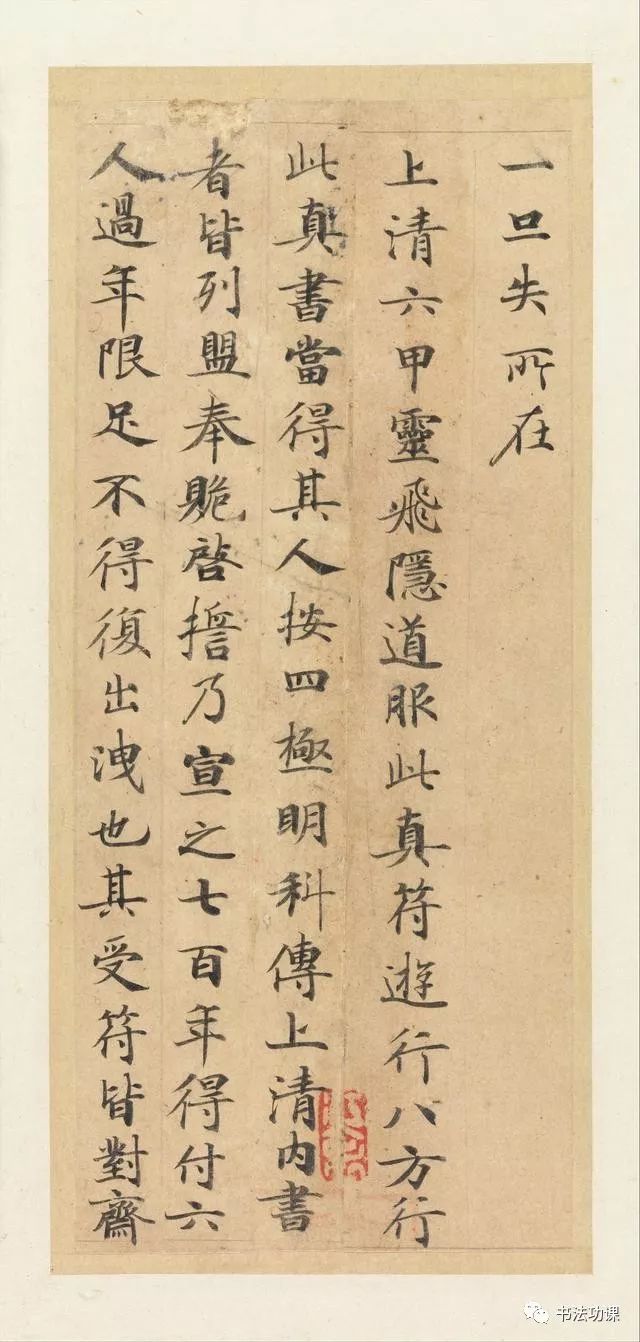 一旦失所在
上清六甲靈飛隱道服此真符遊行八方行
此真書當得其人按四極明科傳上清內書
者皆列盟奉贈啓誓乃宣之七百年得付六
人過年限足不得復出洩也其受符皆對齋
书法功课